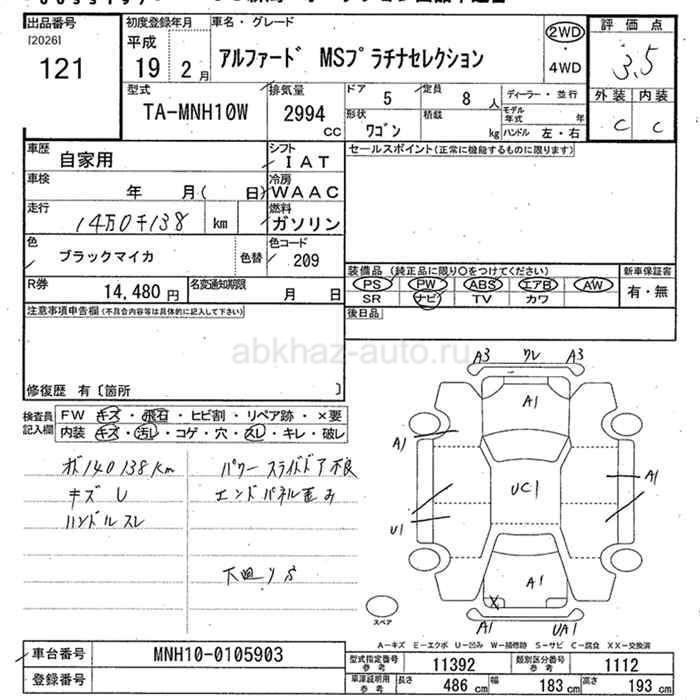 出品番号
[2026]
121
初度登録年月
平成
19年 2月
車名・グレード
アルファード MSプラチナセレクション
2WD
・
4WD
評価点
3.5
外装 内装
C C
型式
TA-MNH10W
排気量
2994
cc
ドア
5
定員
8人
形状
ワゴン
積載
kg
ディーラー・並行
モデル年式 年
ハンドル 左・右
車歴
自家用
シフト
IAT
車検
年 月( 日)
冷房
WAAC
走行
14万0千138 km
燃料
ガソリン
色
ブラックマイカ
色替
色コード
209
R券
14,480円
名変通知期限
月 日
セールスポイント(正常に機能するものに限ります)
装備品(純正品に限り○をつけてください)
PS PW ABS エアB AW
SR ナビ TV カワ
新車保証書
有・無
後日品
注意事項申告欄(不具合内容等は具体的に記入して下さい)
修復歴 有〔箇所 〕
abkhaz-auto.ru
検査員記入欄
FW キズ・飛石・ヒビ割・リペア跡・×要
内装 キズ・汚レ・コゲ・穴・スレ・キレ・破レ
140138km
キズ U
ハンドルスレ
パワースライドドア不良
エンドパネル歪み
下廻りS
A3 ワレ A3
A1
A1
A1
UC1
U1
A1
X
A1 UA1
スペア
A-キズ E-エクボ U-凹み W-補修跡 S-サビ C-腐食 XX-交換済
車台番号
MNH10-0105903
登録番号
型式指定番号 参考
11392
類別区分番号 参考
1112
車庫証明用 参考
長さ 486cm
幅 183cm
高さ 193cm